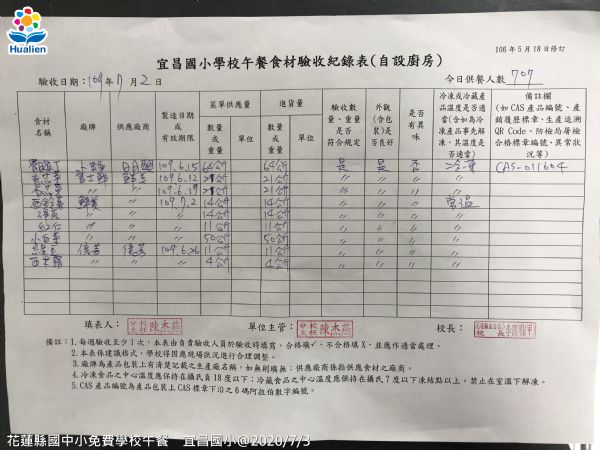 Hualien
106年5月18日修訂
宜昌國小學校午餐食材驗收紀錄表(自設廚房)
驗收日期：109年7月2日
今日供餐人數 707
食材名稱 廠牌 供應廠商 製造日期或有效期限 菜單供應量 進貨量 驗收數量、重量是否符合規定 外觀(含包裝)是否良好 是否有異味 冷凍或冷藏產品溫度是否適當(含如為冷凍產品事先解凍，其溫度是否適當) 備註欄(如CAS產品編號、產銷履歷標章、生產追溯QR Code、防檢局屠檢合格標章編號、異常狀況等)
數量或重量 單位 數量或重量 單位
109.6.15 64公斤 64公斤 是 是 否 冷凍 CAS-011604
109.6.12 21公斤 21公斤 〃 〃 〃
〃 〃 109.6.17 21公斤 〃 〃 〃
109.7.2 14公斤 14公斤 〃 〃 〃 常溫
〃 〃 〃 14公斤 14公斤 〃 〃 〃 〃
〃 〃 〃 11公斤 11公斤 〃 〃 〃 〃
小白菜 〃 〃 〃 50公斤 50公斤 〃 〃 〃 〃
綠豆 109.6.26 11公斤 11公斤 〃 〃 〃 〃
〃 〃 〃 4公斤 4公斤 〃 〃 〃 〃
填表人： 陳杰燕 單位主管： 陳杰燕 校長：
備註：1.每週驗收至少1次，本表由負責驗收人員於驗收時填寫，合格填✓，不合格填X，並應作適當處理。
2.本表係建議格式，學校得因應現場狀況進行合理調整。
3.廠牌為產品包裝上有清楚記載之生產廠名稱，如無則填無；供應廠商係指供應食材之廠商。
4.冷凍食品之中心溫度應保持在攝氏負18度以下；冷藏食品之中心溫度應保持在攝氏7度以下凍結點以上，禁止在室溫下解凍。
5.CAS產品編號為產品包裝上CAS標章下沿之6碼阿拉伯數字編號。
花蓮縣國中小免費學校午餐 宜昌國小@2020/7/3